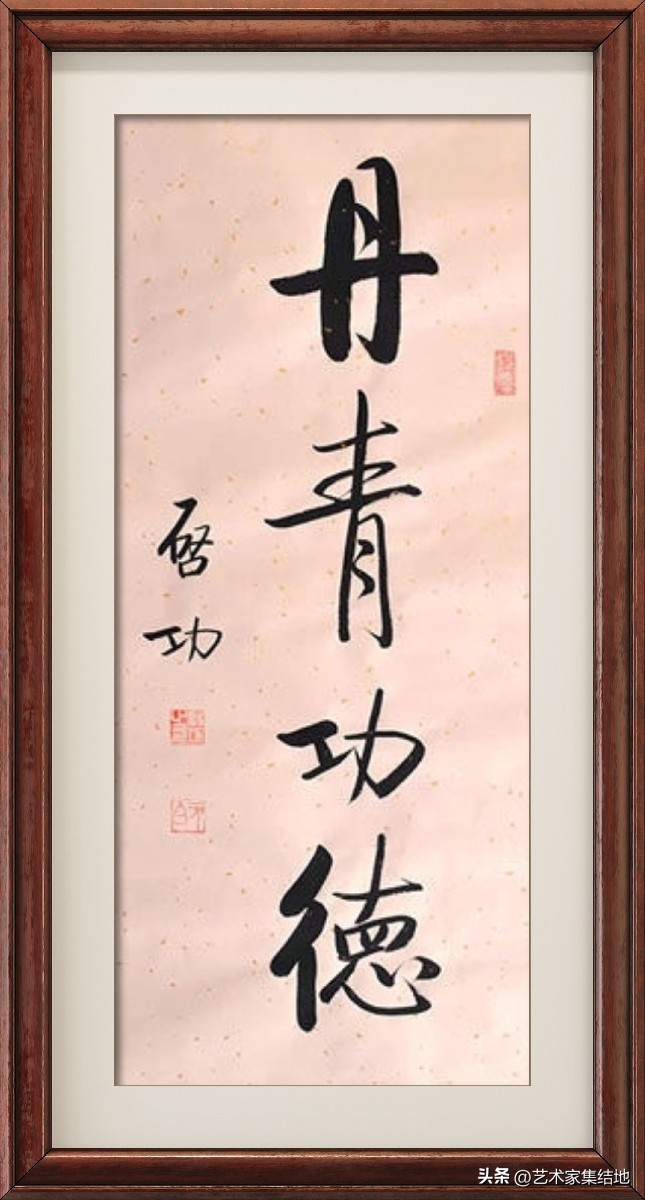 丹青功德
启功
头条 @艺术家集结地